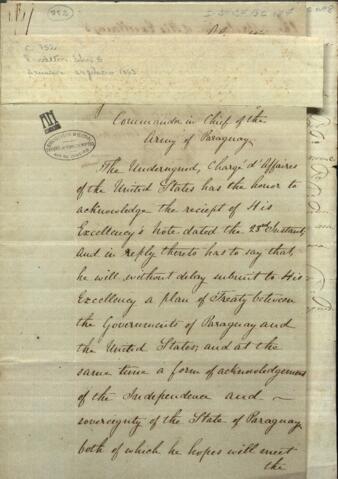 752
Commander in Chief of the
Army of Paraguay.
The Undersigned, Chargé d'Affaires
of the United States has the honor to
acknowledge the reciept of His
Excellency's Note dated the 23rd Instant,
and in reply thereto has to say that,
he will without delay submit to His
Excellency a plan of Treaty between
the Governments of Paraguay and
the United States; and at the
same time a form of acknowledgement
of the Independence and ~
sovereignty of the State of Paraguay
both of which he hopes will meet
the